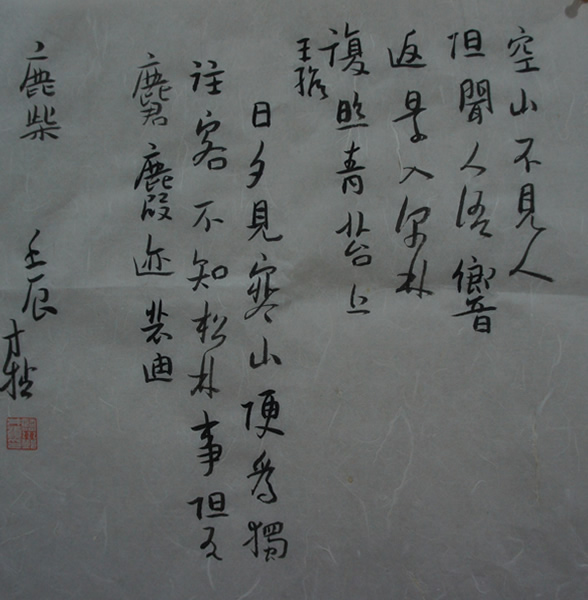 空山不見人
但聞人語響
返景入深林
復照青苔上
王維
日夕見寒山便為獨
往客不知松林事但有
麏麚迹裴迪
鹿柴
壬辰